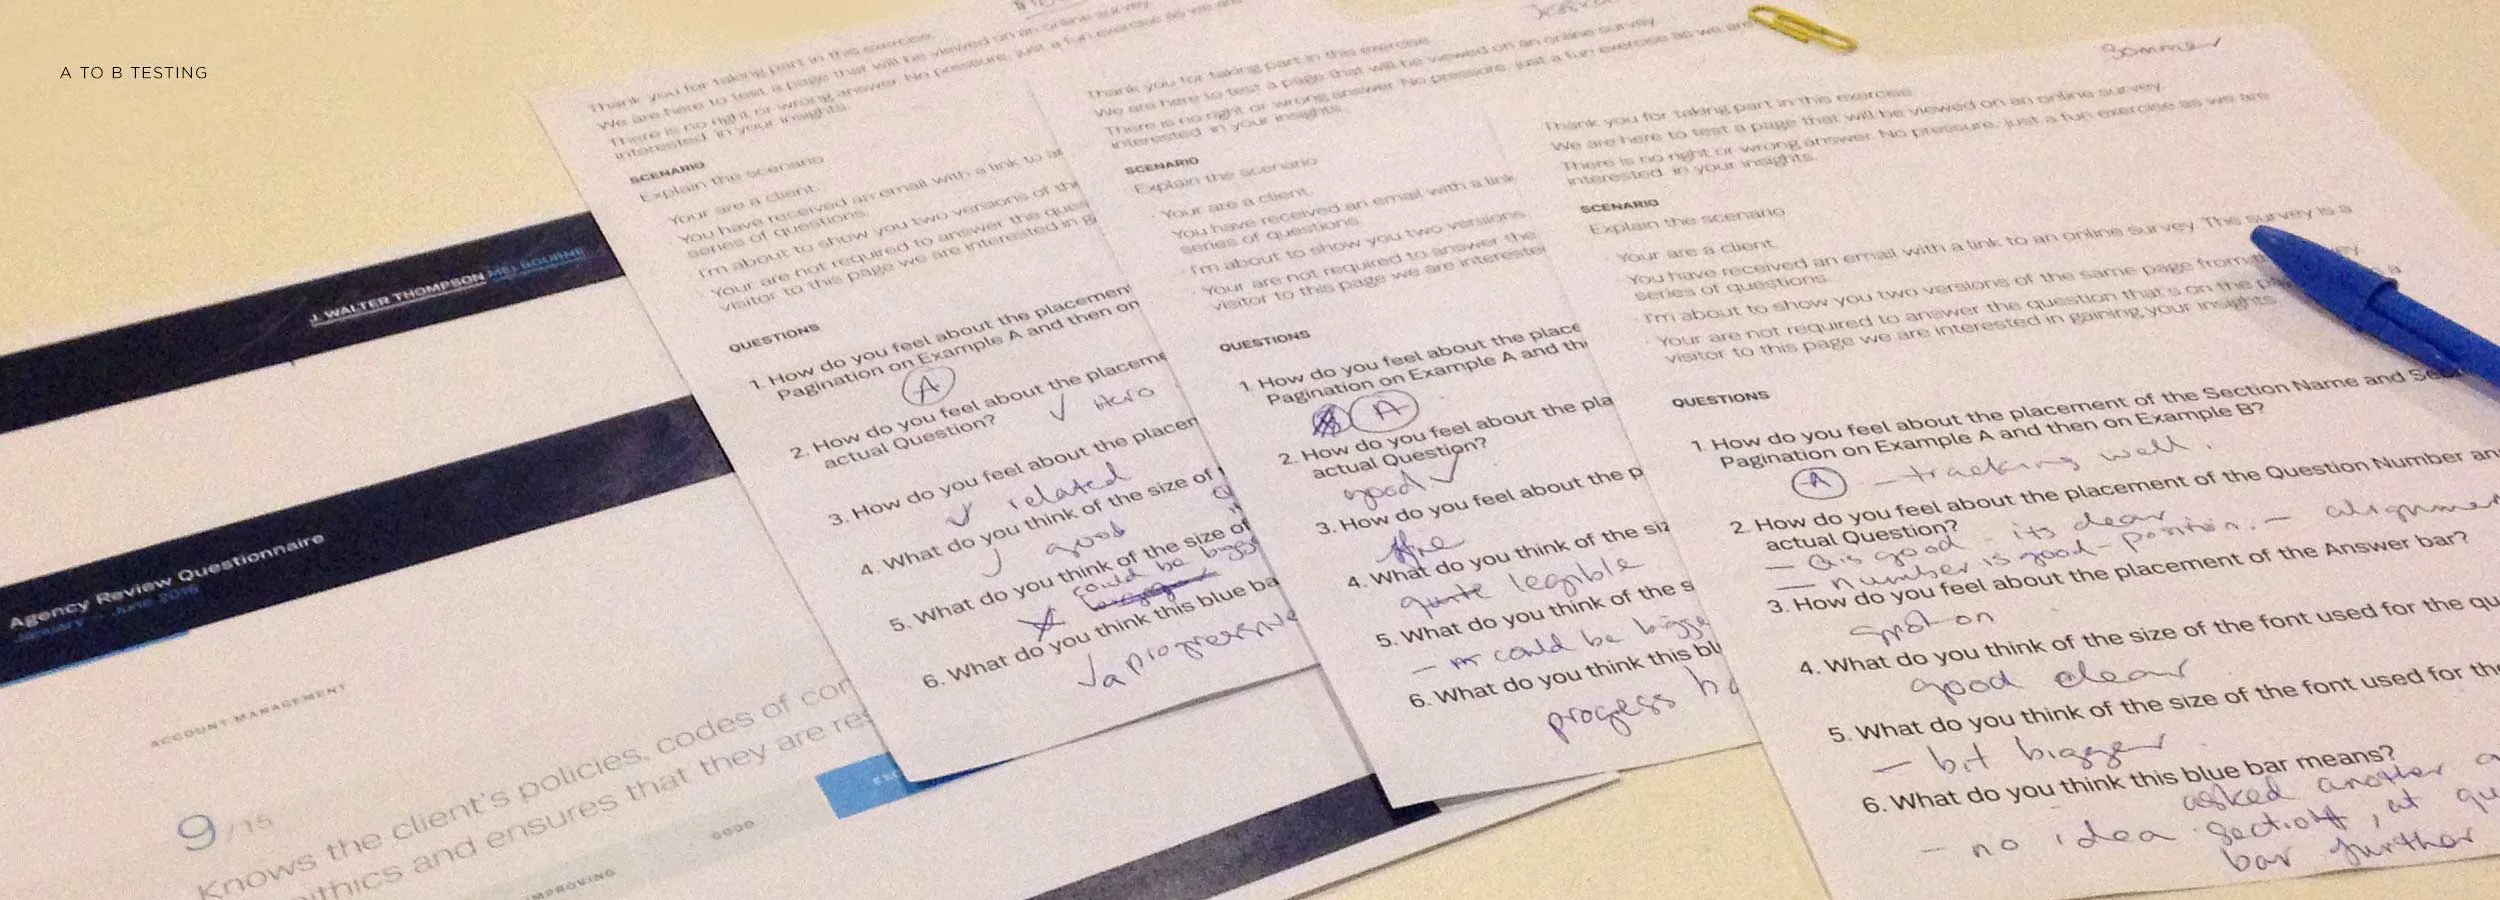 A TO B TESTING
J. WALTER THOMPSON MELBOURNE
Agency Review Questionnaire
January - June 2015
ACCOUNT MANAGEMENT
9 / 15
Knows the client's policies, codes of con
ethics and ensures that they are res
EXC
GOOD
IMPROVING
Thank you for taking part in this exercise.
We are here to test a page that will be viewed on an online survey.
There is no right or wrong answer. No pressure, just a fun exercise as we are
interested in your insights.
SCENARIO
Explain the scenario
· Your are a client.
· You have received an email with a link to an
series of questions.
· I'm about to show you two versions of the
· Your are not required to answer the ques
visitor to this page we are interested in g
QUESTIONS
1. How do you feel about the placement
Pagination on Example A and then on
A
2. How do you feel about the placeme
actual Question?
✓ Hero
3. How do you feel about the placen
✓ related
4. What do you think of the size of
good
5. What do you think of the size of
could be bigge
6. What do you think this blue ba
✓ a progressive
Thank you for taking part in this exercise.
We are here to test a page that will be viewed on an online survey.
There is no right or wrong answer. No pressure, just a fun exercise as we are
interested in your insights.
SCENARIO
Explain the scenario
· Your are a client.
· You have received an email with a link
series of questions.
· I'm about to show you two versions
· Your are not required to answer the
visitor to this page we are interested
QUESTIONS
1. How do you feel about the place
Pagination on Example A and the
A
2. How do you feel about the pla
actual Question?
good ✓
3. How do you feel about the p
fine
4. What do you think of the siz
quite legible
5. What do you think of the s
could be bigge
6. What do you think this bl
progess
Sommer
Thank you for taking part in this exercise.
We are here to test a page that will be viewed on an online survey.
There is no right or wrong answer. No pressure, just a fun exercise as we are
interested in your insights.
SCENARIO
Explain the scenario
· Your are a client.
· You have received an email with a link to an online survey. The survey is a
series of questions.
· I'm about to show you two versions of the same page from the survey.
· Your are not required to answer the question that's on the pa
visitor to this page we are interested in gaining your insights
QUESTIONS
1. How do you feel about the placement of the Section Name and Sec
Pagination on Example A and then on Example B?
A - tracking well.
2. How do you feel about the placement of the Question Number an
actual Question?
- Q is good - its clear
- number is good - position. - alignmen
3. How do you feel about the placement of the Answer bar?
spot on
4. What do you think of the size of the font used for the qu
good clear
5. What do you think of the size of the font used for the
- bit bigger
6. What do you think this blue bar means?
asked another
- no idea section, at qu
bar further